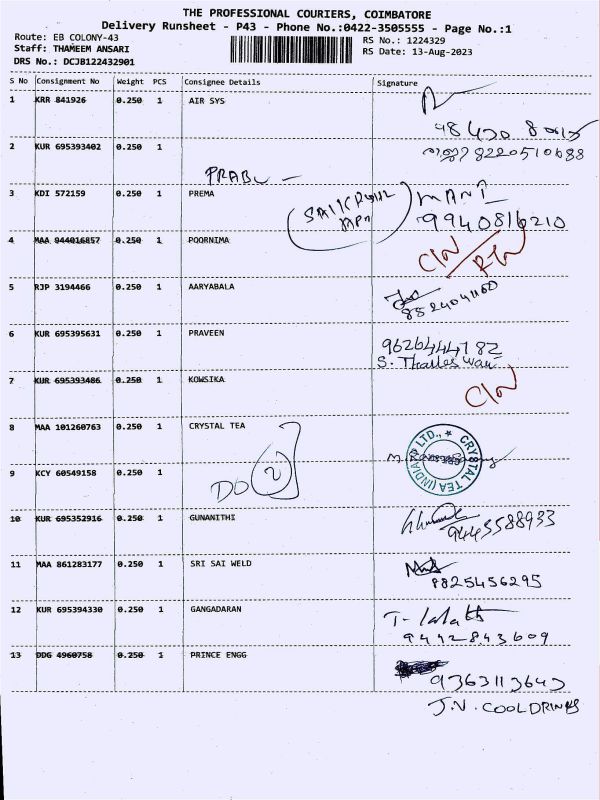 THE PROFESSIONAL COURIERS, COIMBATORE
Delivery Runsheet - P43 - Phone No.:0422-3505555 - Page No.:1
Route: EB COLONY-43
RS No.: 1224329
Staff: THAMEEM ANSARI
RS Date: 13-Aug-2023
DRS No.: DCJB122432901
S No Consignment No Weight PCS Consignee Details Signature
1 KRR 841926 0.250 1 AIR SYS
2 KUR 695393402 0.250 1
8220510688
PRABU
3 KDI 572159 0.250 1 PREMA
MANI
9940816210
4 MAA 944016857 0.250 1 POORNIMA
5 RJP 3194466 0.250 1 AARYABALA
6 KUR 695395631 0.250 1 PRAVEEN
S.
7 KUR 695393486 0.250 1 KOWSIKA
8 MAA 101260763 0.250 1 CRYSTAL TEA
CRYSTAL TEA (INDIA) P LTD.,
9 KCY 60549158 0.250 1
DO 2
10 KUR 695352916 0.250 1 GUNANITHI
9443588933
11 MAA 861283177 0.250 1 SRI SAI WELD
9825456295
12 KUR 695394330 0.250 1 GANGADARAN
9442843609
13 DDG 4960758 0.250 1 PRINCE ENGG
9363113643
J.V. COOLDRINKS